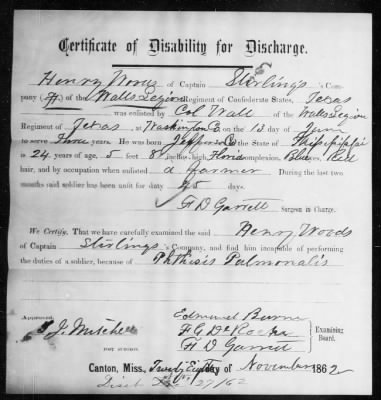 Certificate of Disability for Discharge.
Henry Woods of Captain Sterling's Com-
pany (H) of the Walls Legion Regiment of Confederate States, Texas
was enlisted by Col Wall of the Walls Legion
Regiment of Texas, at Washington Co on the 13 day of June
to serve Three years. He was born Jefferson Co the State of Mississippi
is 24 years of age, 5 feet 8 inches high, Florid complexion, Blue eyes, Red
hair, and by occupation when enlisted a farmer During the last two
months said soldier has been unfit for duty 45 days.
F D Garrett Surgeon in Charge.
We Certify, That we have carefully examined the said Henry Woods
of Captain Sterling's Company, and find him incapable of performing
the duties of a soldier, because of Phthisis Pulmonalis
Approved,
J. Mitchell
Edmund Burns
F G De
F D Garrett
Examining
Board.
Canton, Miss., Twenty Eighth day of November 1862
Disch 27/62